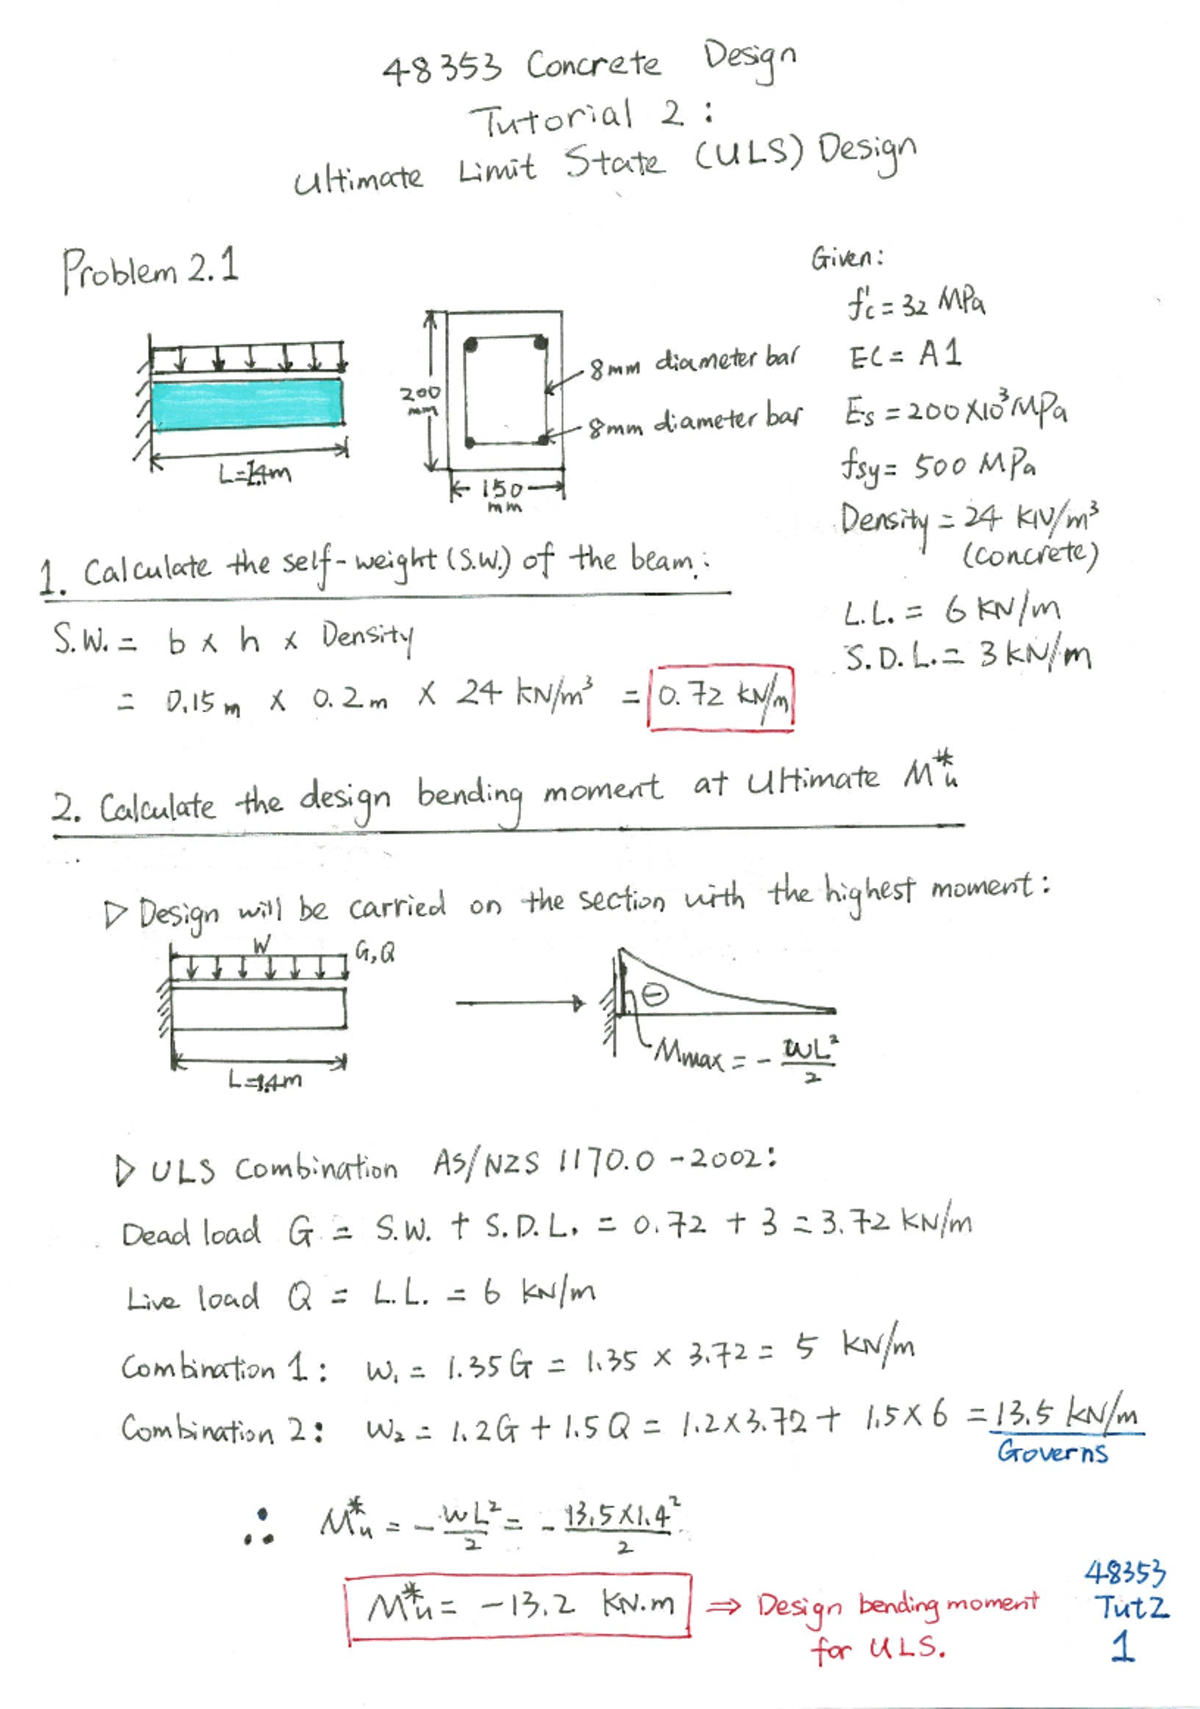 48353 Concrete Design
Tutorial 2 :
Ultimate Limit State (ULS) Design
Problem 2.1
200
mm
150
mm
8mm diameter bar
8mm diameter bar
L=1.4m
Given:
f'c = 32 MPa
EC = A1
Es = 200 x10³ MPa
fsy = 500 MPa
Density = 24 kN/m³
(concrete)
L.L. = 6 KN/m
S.D.L. = 3 KN/m
1. Calculate the self-weight (S.W.) of the beam :
S.W. = b x h x Density
= 0.15 m x 0.2 m x 24 kN/m³ = 0.72 kN/m
2. Calculate the design bending moment at ultimate M*u
▷ Design will be carried on the section with the highest moment :
W G,Q
L=1.4m
⊖
Mmax = - wL²/2
▷ ULS Combination AS/NZS 1170.0 -2002:
Dead load G = S.W. + S.D.L. = 0.72 + 3 = 3.72 KN/m
Live load Q = L.L. = 6 kN/m
Combination 1 : W₁ = 1.35 G = 1.35 x 3.72 = 5 kN/m
Combination 2 : W₂ = 1.2G + 1.5Q = 1.2x3.72 + 1.5x6 = 13.5 kN/m
Governs
∴ M*u = - wL²/2 = - 13.5x1.4²/2
M*u = -13.2 KN.m ⇒ Design bending moment
for ULS.
48353
Tut2
1